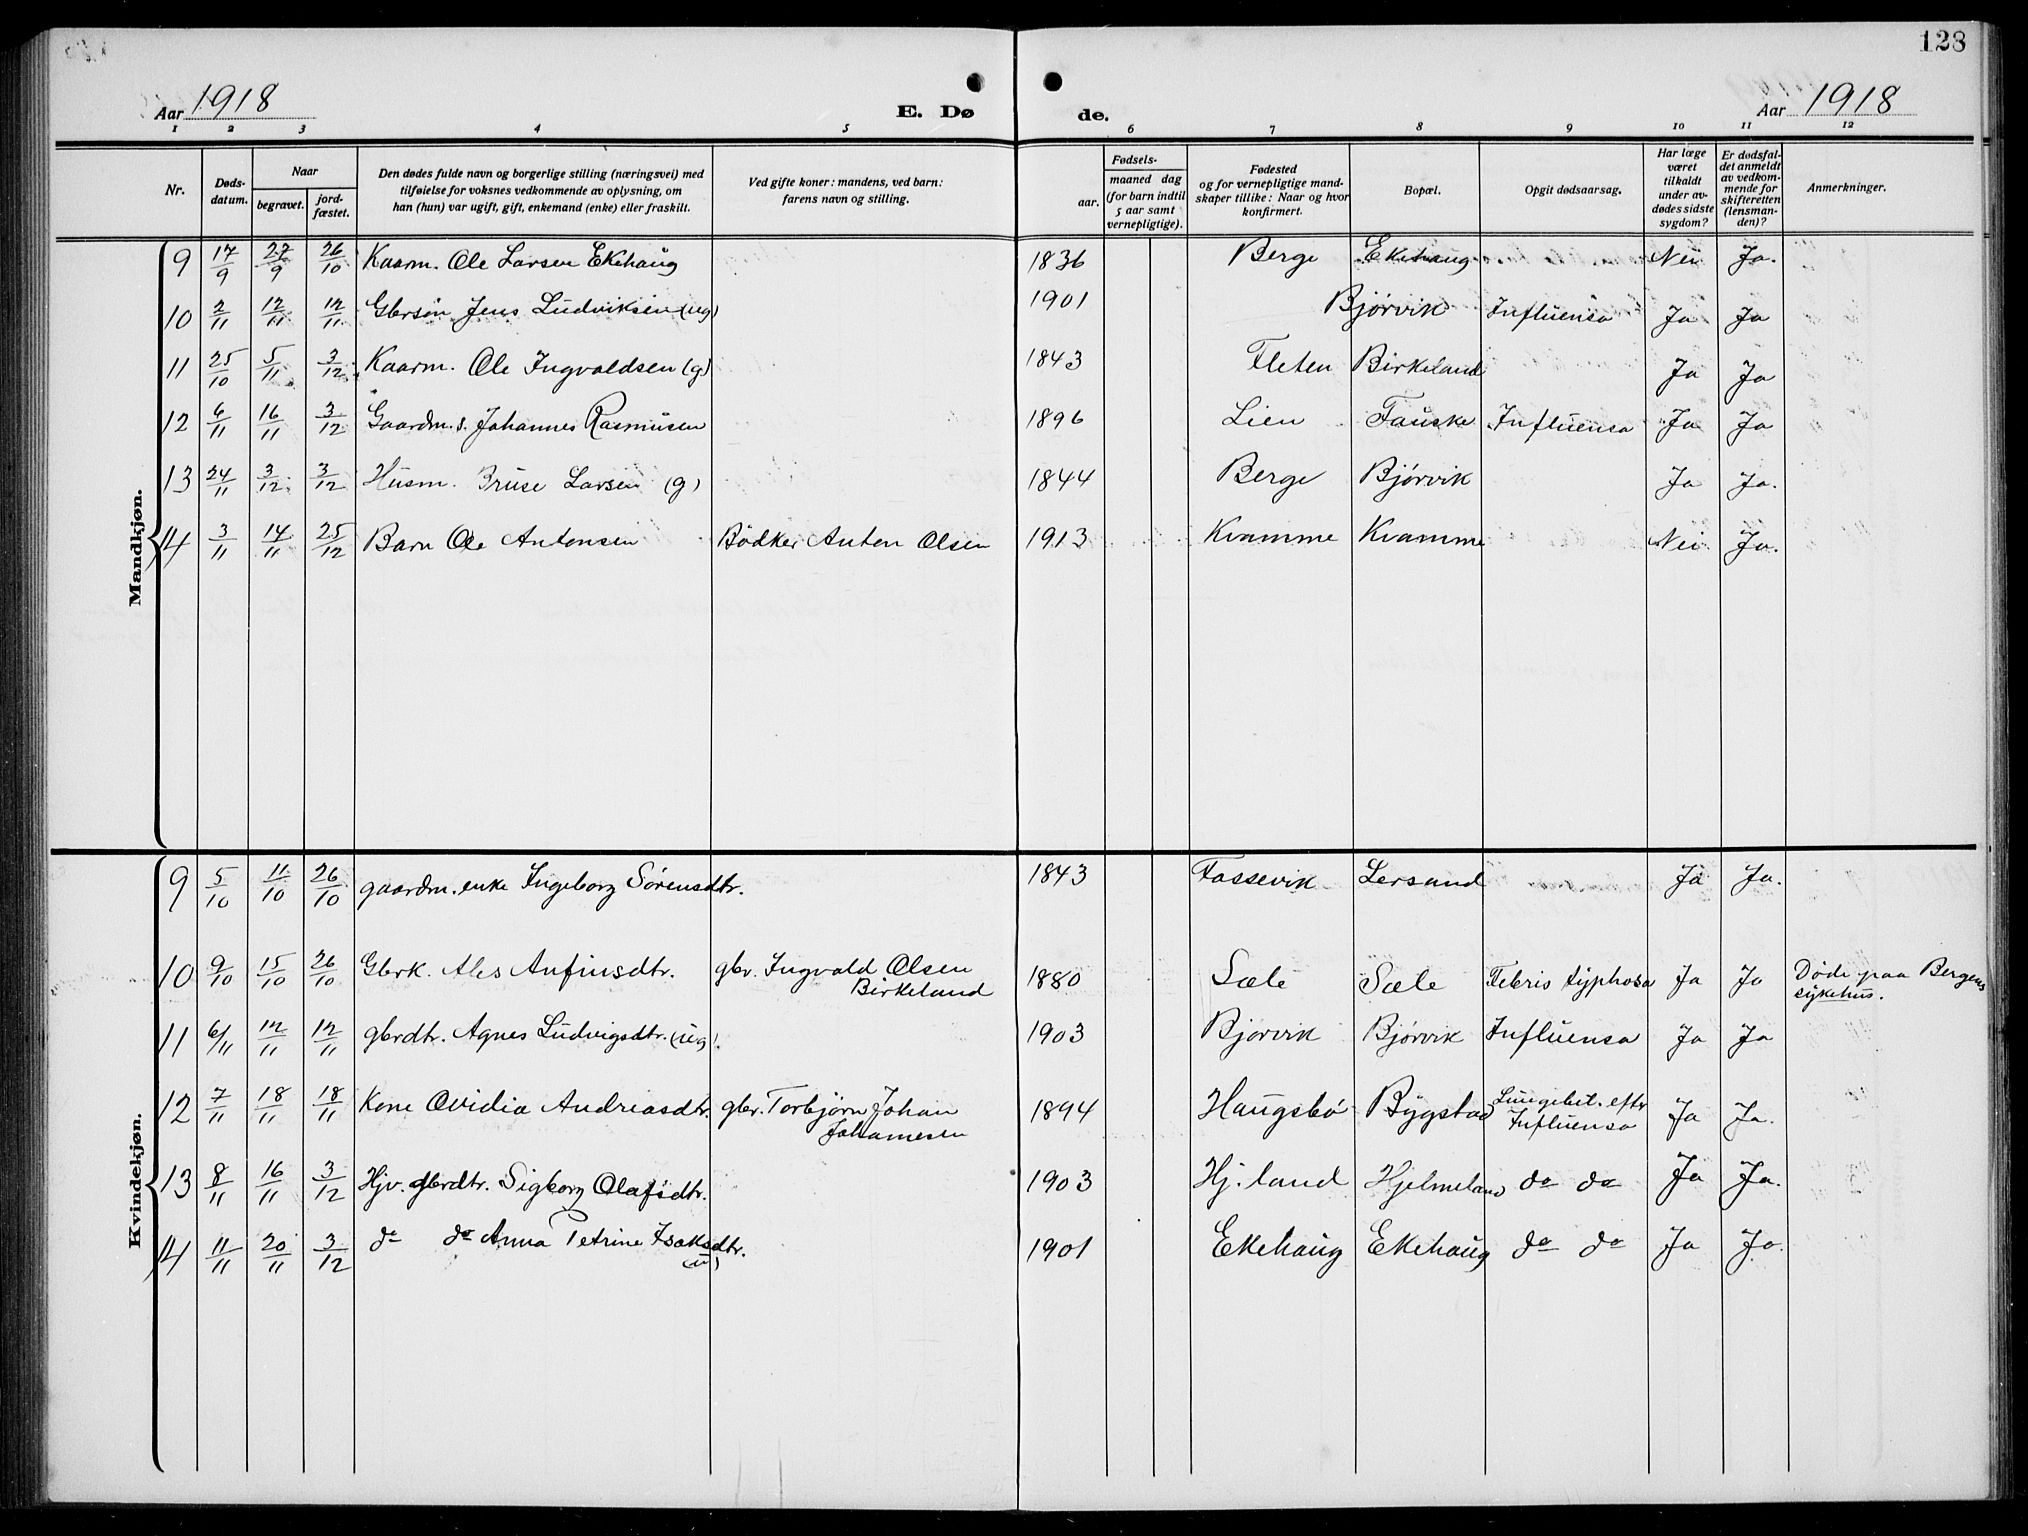 128
Aar 1918 E. Dø de. Aar 1918
1 2 3 4 5 6 7 8 9 10 11 12
Nr. Døds-datum. Naar begravet. jord-fæstet. Den dødes fulde navn og borgerlige stilling (næringsvei) med tilføielse for voksnes vedkommende av oplysning, om han (hun) var ugift, gift, enkemand (enke) eller fraskilt. Ved gifte koner: mandens, ved barn: farens navn og stilling. Fødsels- aar. maaned dag (for barn indtil 5 aar samt vernepligtige). Fødested og for vernepligtige mand-skaper tillike: Naar og hvor konfirmert. Bopæl. Opgit dødsaarsag. Har læge været tilkaldt under av-dødes sidste sygdom? Er dødsfal-det anmeldt av vedkom-mende for skifteretten (lensman-den)? Anmerkninger.
Mandkjøn.
9 17/9 27/9 26/10 Kaarm. Ole Larsen Ekehaug 1836 Berge Ekehaug Nei Ja.
10 2/11 12/11 12/11 Gbrsøn Jens Ludviksen (ug) 1901 Bjørvik Influensa Ja Ja
11 25/10 5/11 3/12 Kaarm. Ole Ingvaldsen (g) 1843 Fleten Birkeland Ja Ja
12 6/11 16/11 3/12 Gaardm.s. Johannes Rasmusen 1896 Lien Fauske Influensa Ja Ja
13 24/11 3/12 3/12 Husm. Bruse Larsen (g) 1844 Berge Bjørvik Ja Ja.
14 3/11 14/11 25/12 Barn Ole Antonsen Bødker Anton Olsen 1913 Kvamme Kvamme Nei Ja.
Kvindekjøn.
9 5/10 11/10 26/10 gaardm. enke Ingeborg Sørensdtr. 1843 Fossevik Lersund Ja Ja.
10 9/10 15/10 26/10 Gbrk. Ales Anfinsdtr. gbr. Ingvald Olsen Birkeland 1880 Sæle Sæle Febris typhosa Ja Ja Døde paa Bergens sykehus.
11 6/11 12/11 12/11 gbrdtr. Agnes Ludvigsdtr. (ug). 1903 Bjørvik Bjørvik Influensa Ja Ja
12 7/11 18/11 18/11 Kone Ovidia Andreasdtr. gbr. Torbjørn Johan Johannesen 1894 Haugsbø Bygstad Lungebet. eftr Influensa Ja Ja.
13 8/11 16/11 3/12 Hjv. gbrdtr. Sigborg Olafsdtr. 1903 Hj.land Hjelmeland do do Ja Ja.
14 11/11 20/11 3/12 do do Anna Petrine Isaksdtr. (u) 1901 Ekehaug Ekehaug do do Ja Ja.